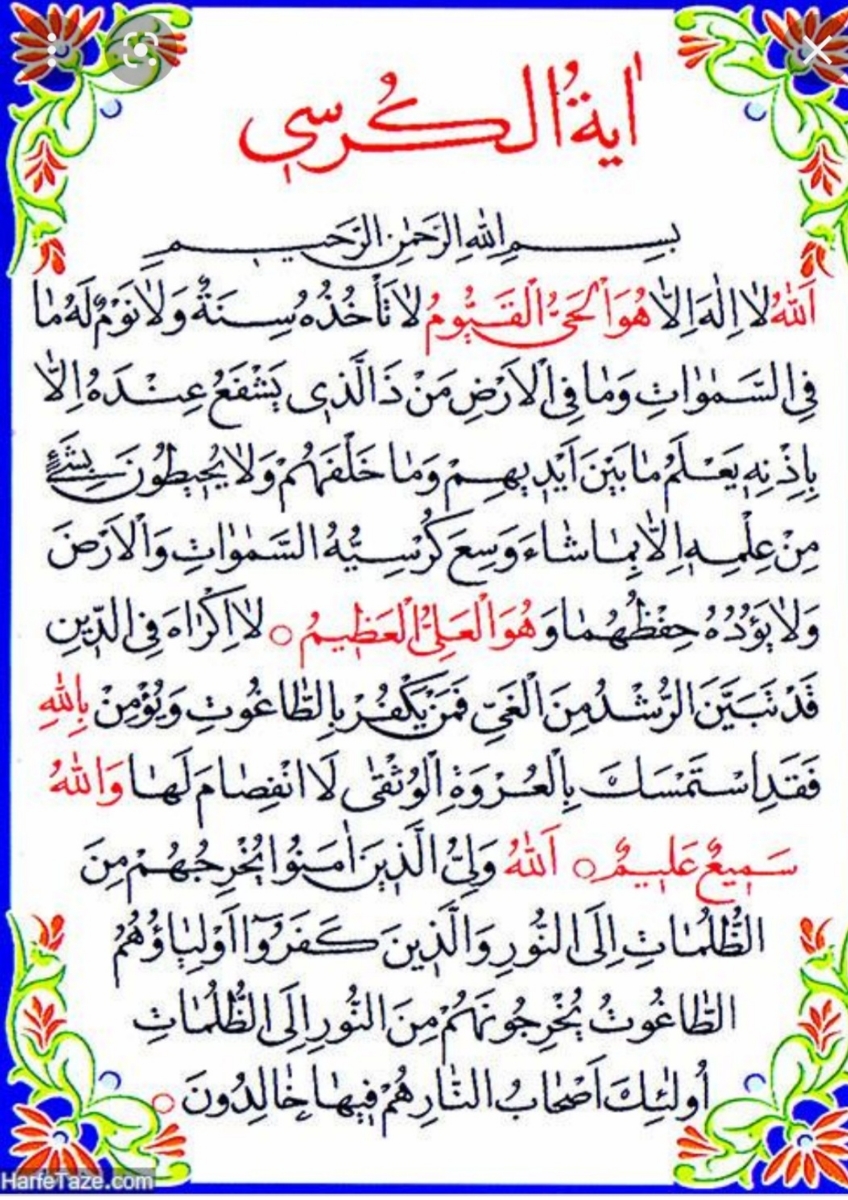 اٰیةُ الکُرسي
بِسمِ اللهِ الرَّحمٰنِ الرَّحیمِ
اَللهُ لا اِلٰهَ اِلاّٰ هُوَ الْحَیُّ الْقَیُّومُ لا تَأْخُذُهُ سِنَةٌ وَلاٰ نَوْمٌ لَهُ مٰا
فِی السَّمٰوٰاتِ وَمٰا فِی الْاَرْضِ مَنْ ذَا الَّذی یَشْفَعُ عِنْدَهُ اِلاّٰ
بِاِذْنِهِ یَعْلَمُ مٰا بَیْنَ اَیْدیهِمْ وَمٰا خَلْفَهُمْ وَلاٰ یُحیطُونَ بِشَیْءٍ
مِنْ عِلْمِهِ اِلاّٰ بِمٰا شٰاءَ وَسِعَ کُرْسِیُّهُ السَّمٰوٰاتِ وَالْاَرْضَ
وَلاٰ یَؤُدُهُ حِفْظُهُمٰا وَ هُوَ الْعَلِیُّ الْعَظیمُ ○ لاٰ اِکْرٰاهَ فِی الدّینِ
قَدْ تَبَیَّنَ الرُّشْدُ مِنَ الْغَیِّ فَمَنْ یَکْفُرْ بِالطّٰاغُوتِ وَیُؤْمِنْ بِاللهِ
فَقَدِ اسْتَمْسَكَ بِالْعُرْوَةِ الْوُثْقیٰ لَا انْفِصٰامَ لَهٰا وَاللهُ
سَمیعٌ عَلیمٌ ○ اَللهُ وَلِیُّ الَّذینَ اٰمَنُوا یُخْرِجُهُمْ مِنَ
الظُّلُمٰاتِ اِلَی النُّورِ وَالَّذینَ کَفَرُوٓا اَوْلِیٰاؤُهُمُ
الطّٰاغُوتُ یُخْرِجُونَهُمْ مِنَ النُّورِ اِلَی الظُّلُمٰاتِ
اُولٰئِكَ اَصْحٰابُ النّٰارِ هُمْ فیهٰا خٰالِدُونَ ○
HarfeTaze.com